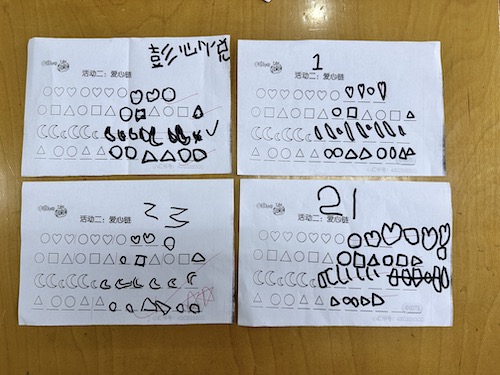 彭心悅
活动二：爱心链
1
活动二：爱心链
23
活动二：爱心链
21
活动二：爱心链